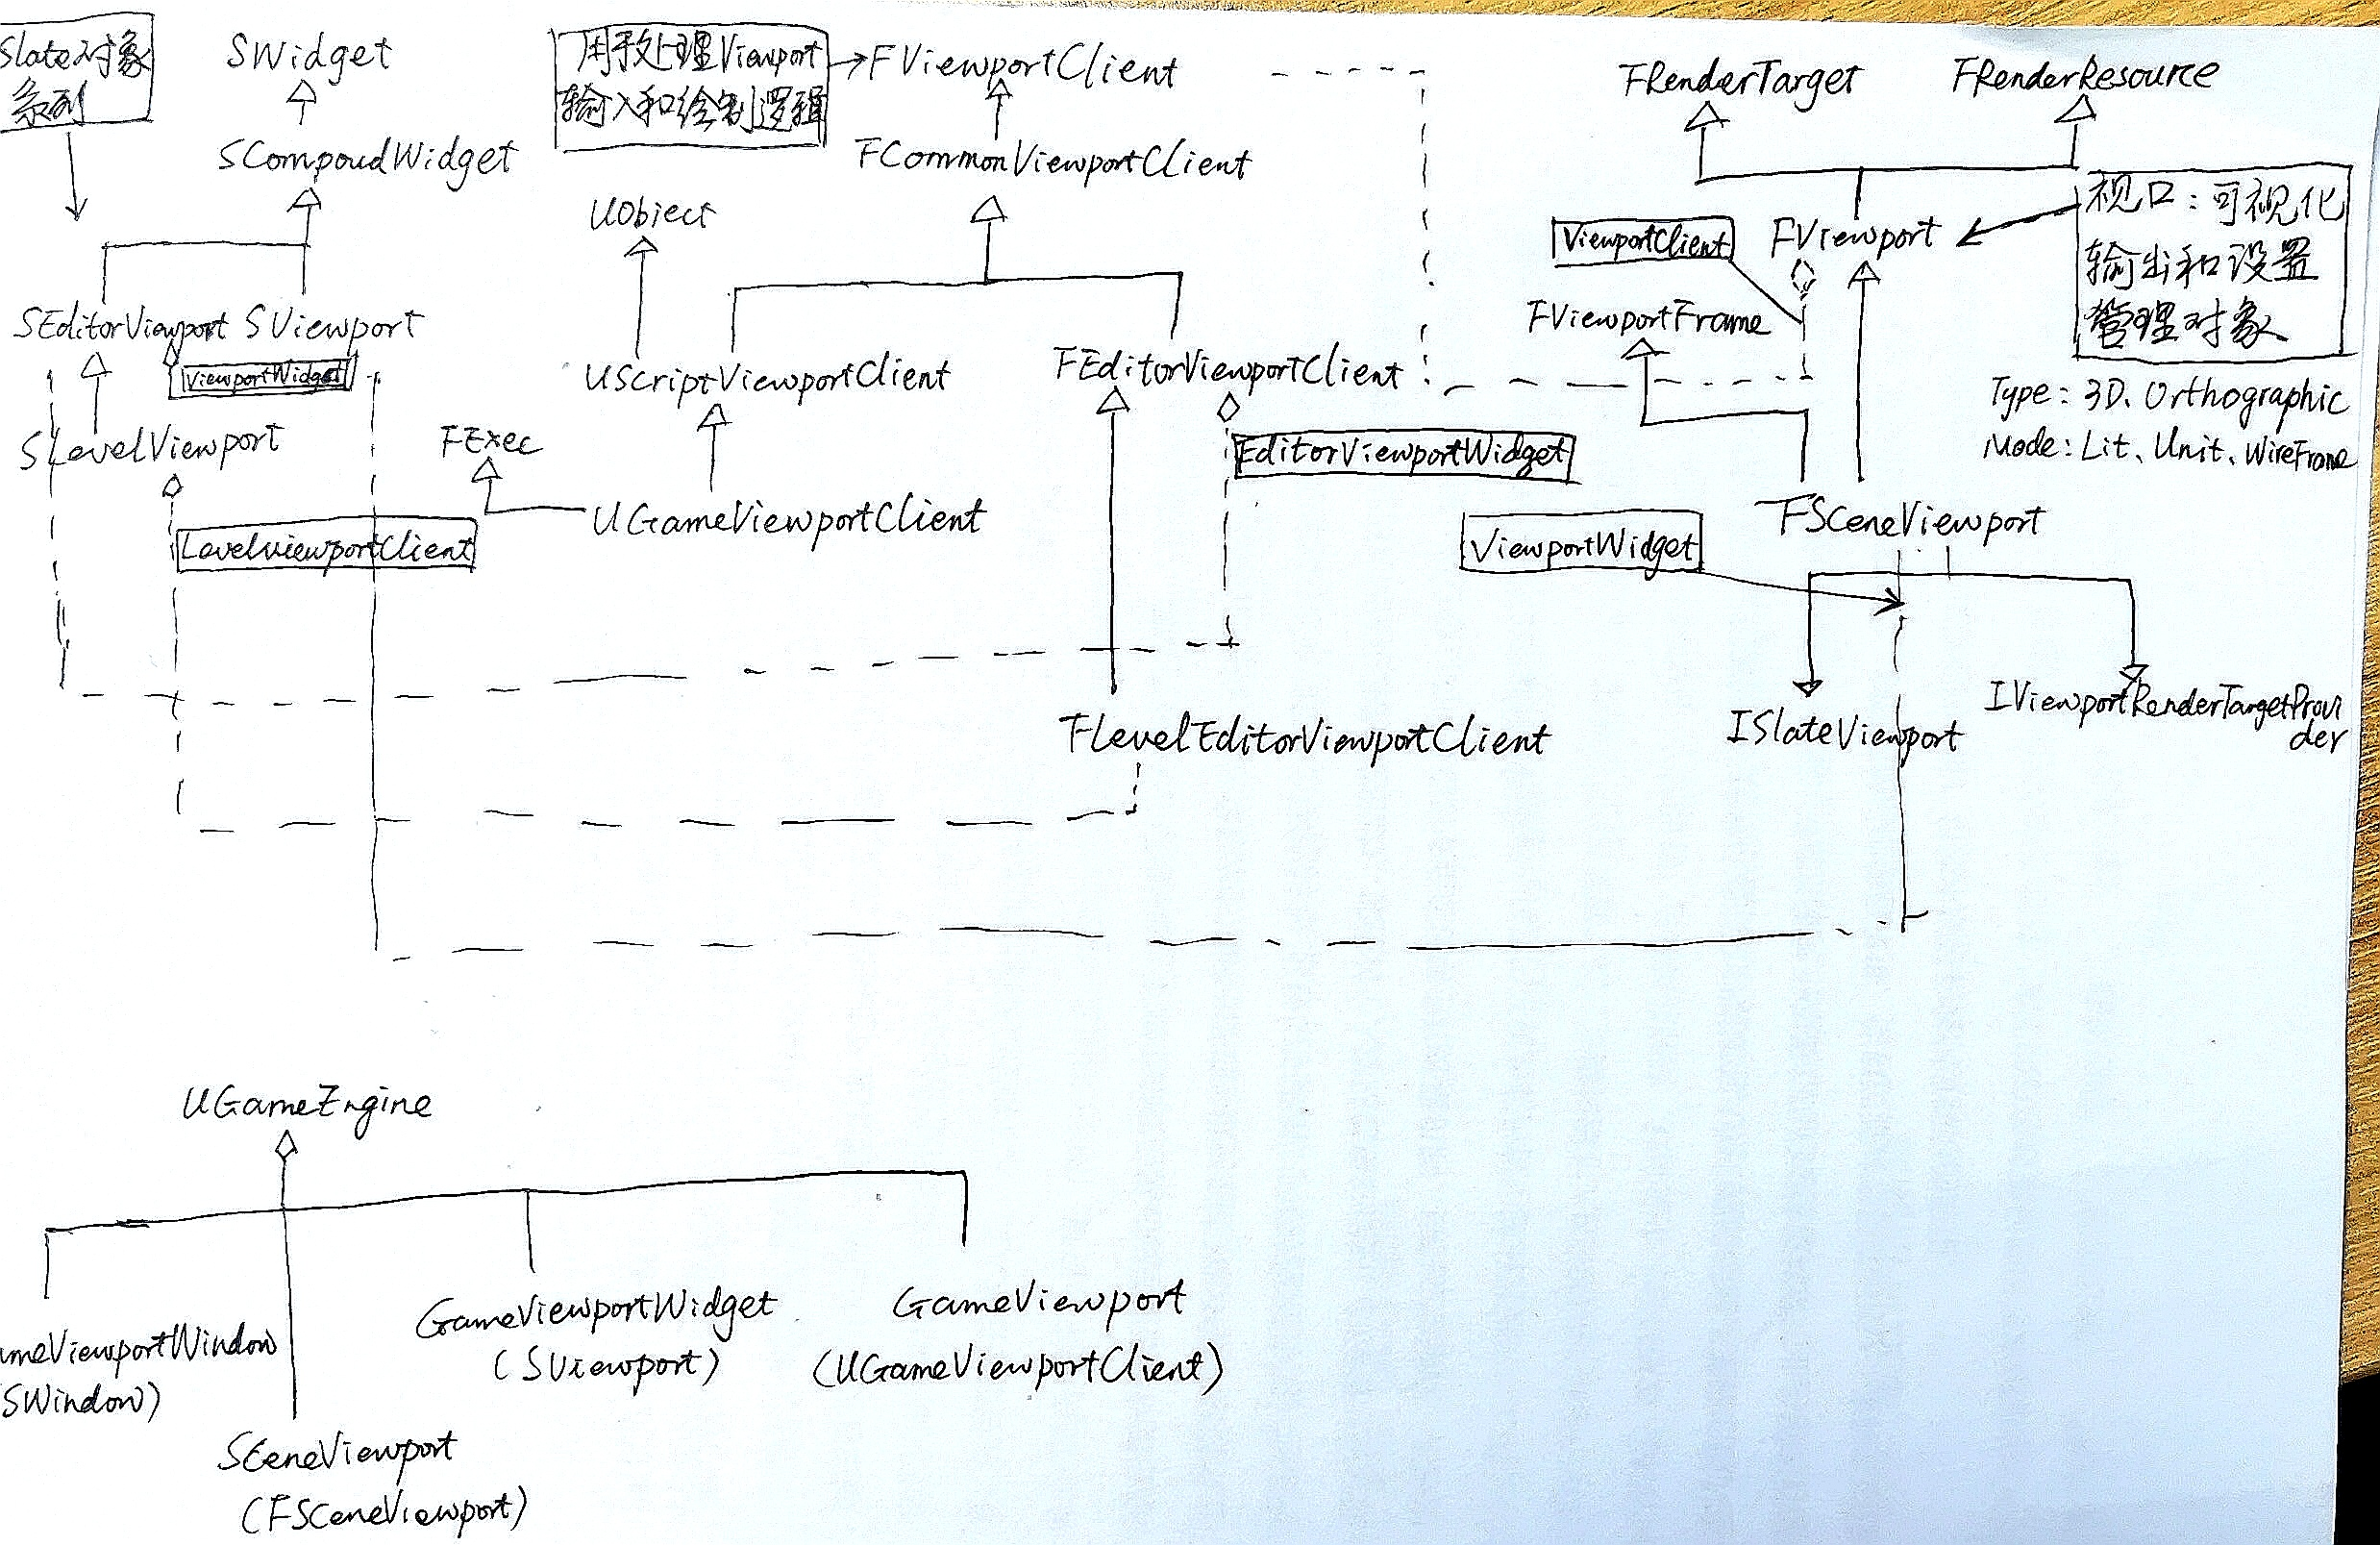 Slate对象
系列
SWidget
SCompoudWidget
SEditorViewport
SViewport
ViewportWidget
SLevelViewport
LevelviewportClient
用于处理Viewport
输入和绘制逻辑
FViewportClient
FCommonViewportClient
UObject
UScriptViewportClient
FEditorViewportClient
FExec
UGameViewportClient
EditorViewportWidget
FLevelEditorViewportClient
FRenderTarget
FRenderResource
ViewportClient
FViewport
视口：可视化
输出和设置
管理对象
FViewportFrame
Type: 3D、Orthographic
Mode: Lit、Unit、WireFrame
FSceneViewport
ViewportWidget
ISlateViewport
IViewportRenderTargetProvi
der
UGameEngine
ameViewportWindow
(SWindow)
SceneViewport
(FSceneViewport)
GameViewportWidget
(SViewport)
GameViewport
(UGameViewportClient)